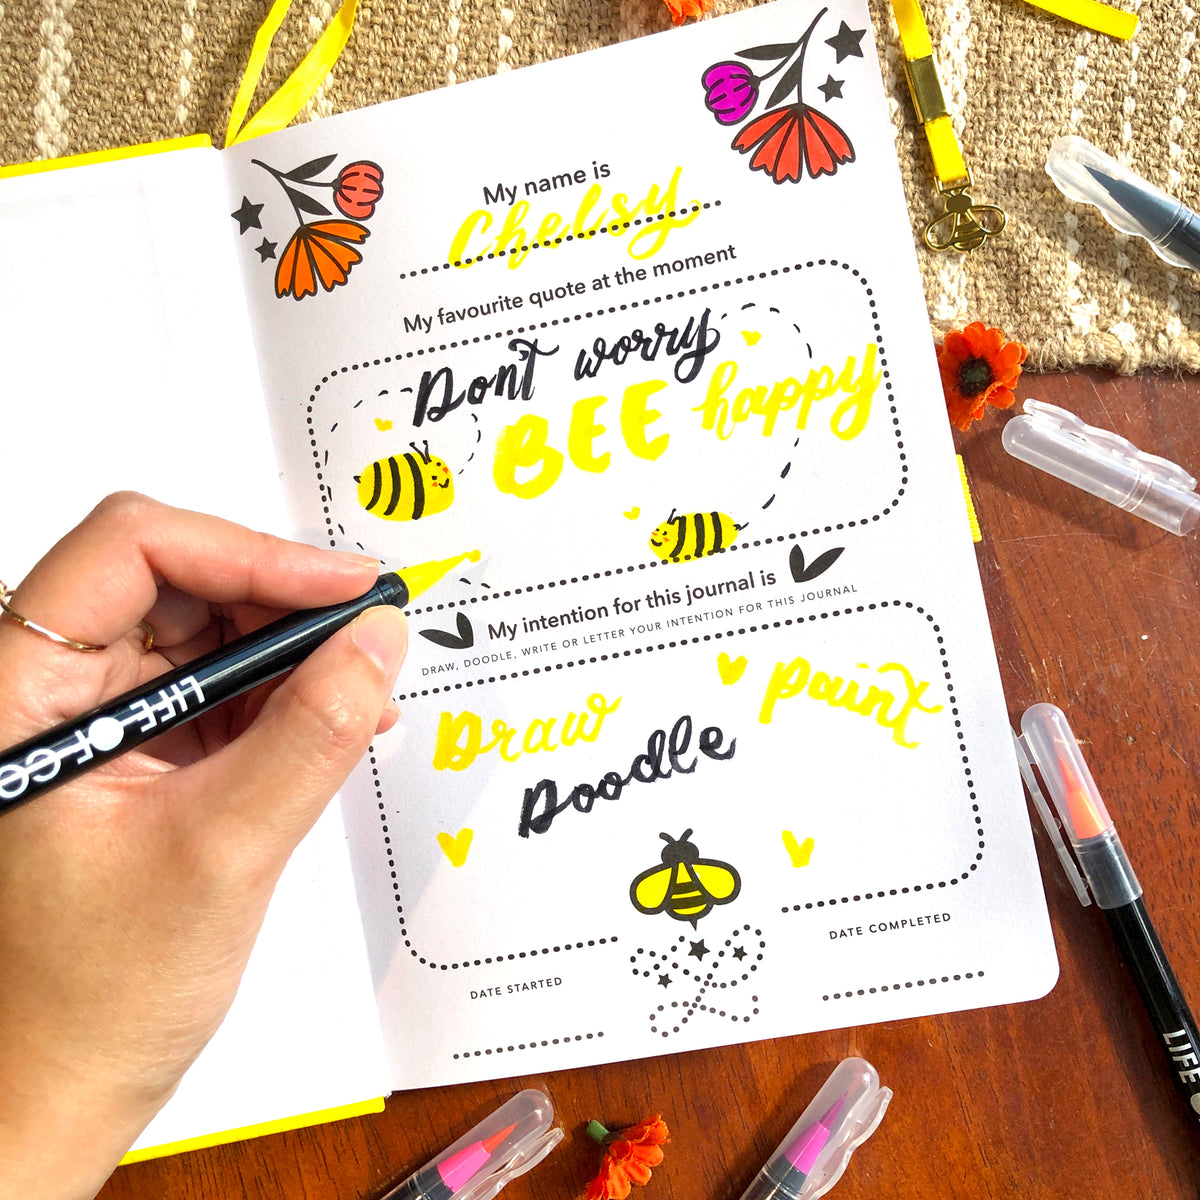 My name is
Chelsy
My favourite quote at the moment
Don't worry
BEE happy
My intention for this journal is
DRAW, DOODLE, WRITE OR LETTER YOUR INTENTION FOR THIS JOURNAL
Draw
paint
Doodle
DATE STARTED
DATE COMPLETED
LIFE OF CO
LIFE